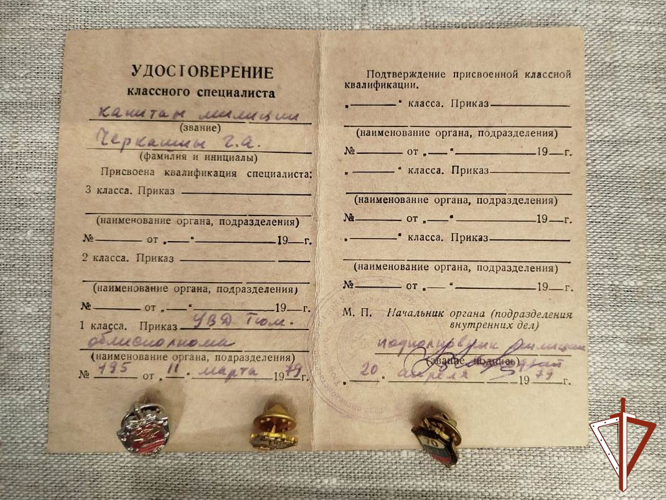 УДОСТОВЕРЕНИЕ
классного специалиста
капитан милиции
(звание)
Черкашин Г.А.
(фамилия и инициалы)
Присвоена квалификация специалиста:
3 класса. Приказ
(наименование органа, подразделения)
№ от „ — “ 19 г.
2 класса. Приказ
(наименование органа, подразделения)
№ от „ — “ 19 г.
1 класса. Приказ УВД Тюм.
облисполкома
(наименование органа, подразделения)
№ 195 от 11 марта 1979 г.
Подтверждение присвоенной классной
квалификации.
„ — “ класса. Приказ
(наименование органа, подразделения)
№ от „ — “ 19 г.
„ — “ класса. Приказ
(наименование органа, подразделения)
№ от „ — “ 19 г.
„ — “ класса. Приказ
(наименование органа, подразделения)
№ от „ — “ 19 г.
М. П. Начальник органа (подразделения
внутренних дел)
подполковник милиции
(звание, подпись)
„ 20 “ апреля 1979 г.